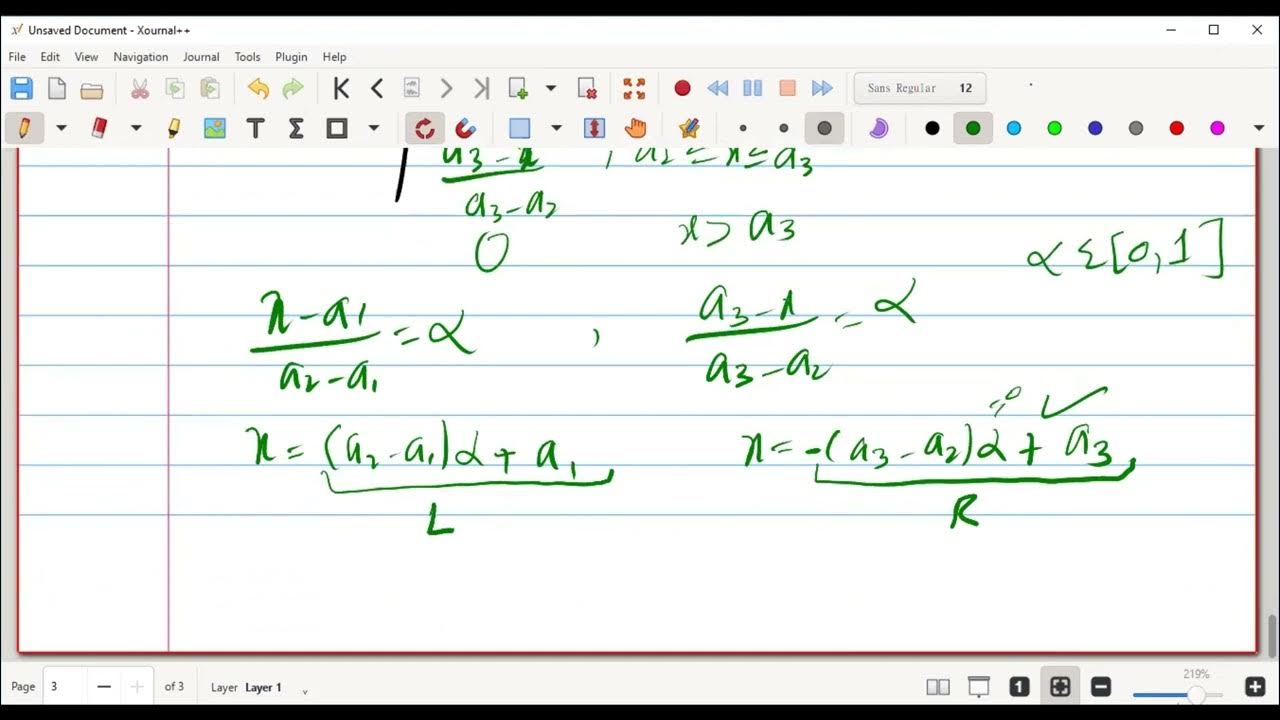 Unsaved Document - Xournal++
File Edit View Navigation Journal Tools Plugin Help
Sans Regular 12
a3 - x / a3 - a2 , a2 ≤ x ≤ a3
0 x > a3
α ε [0, 1]
x - a1 / a2 - a1 = α , a3 - x / a3 - a2 = α
= 0 ✓
x = (a2 - a1)α + a1 x = -(a3 - a2)α + a3
L R
Page 3 of 3 Layer Layer 1 219%